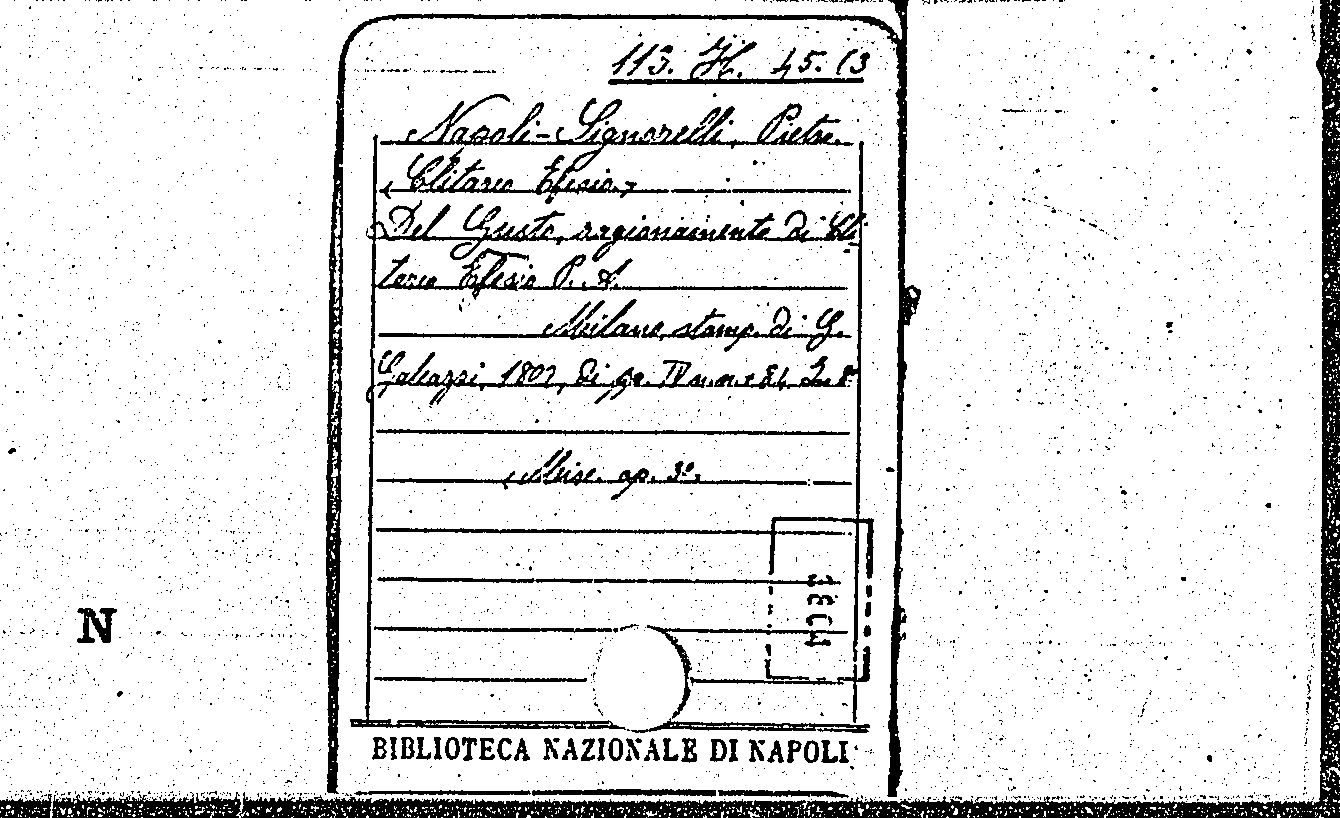 113. H. 45. (3
Napoli-Signorelli, Pietro.
< Clitarco Efesio >
Del Gusto, ragionamento di Cli
tarco Efesio P. A.
Milano, stamp. di G.
Galeazzi, 1802, di pp. IV n.n. + 84. In 8º
Misc. op. 3º.
N
BIBLIOTECA NAZIONALE DI NAPOLI